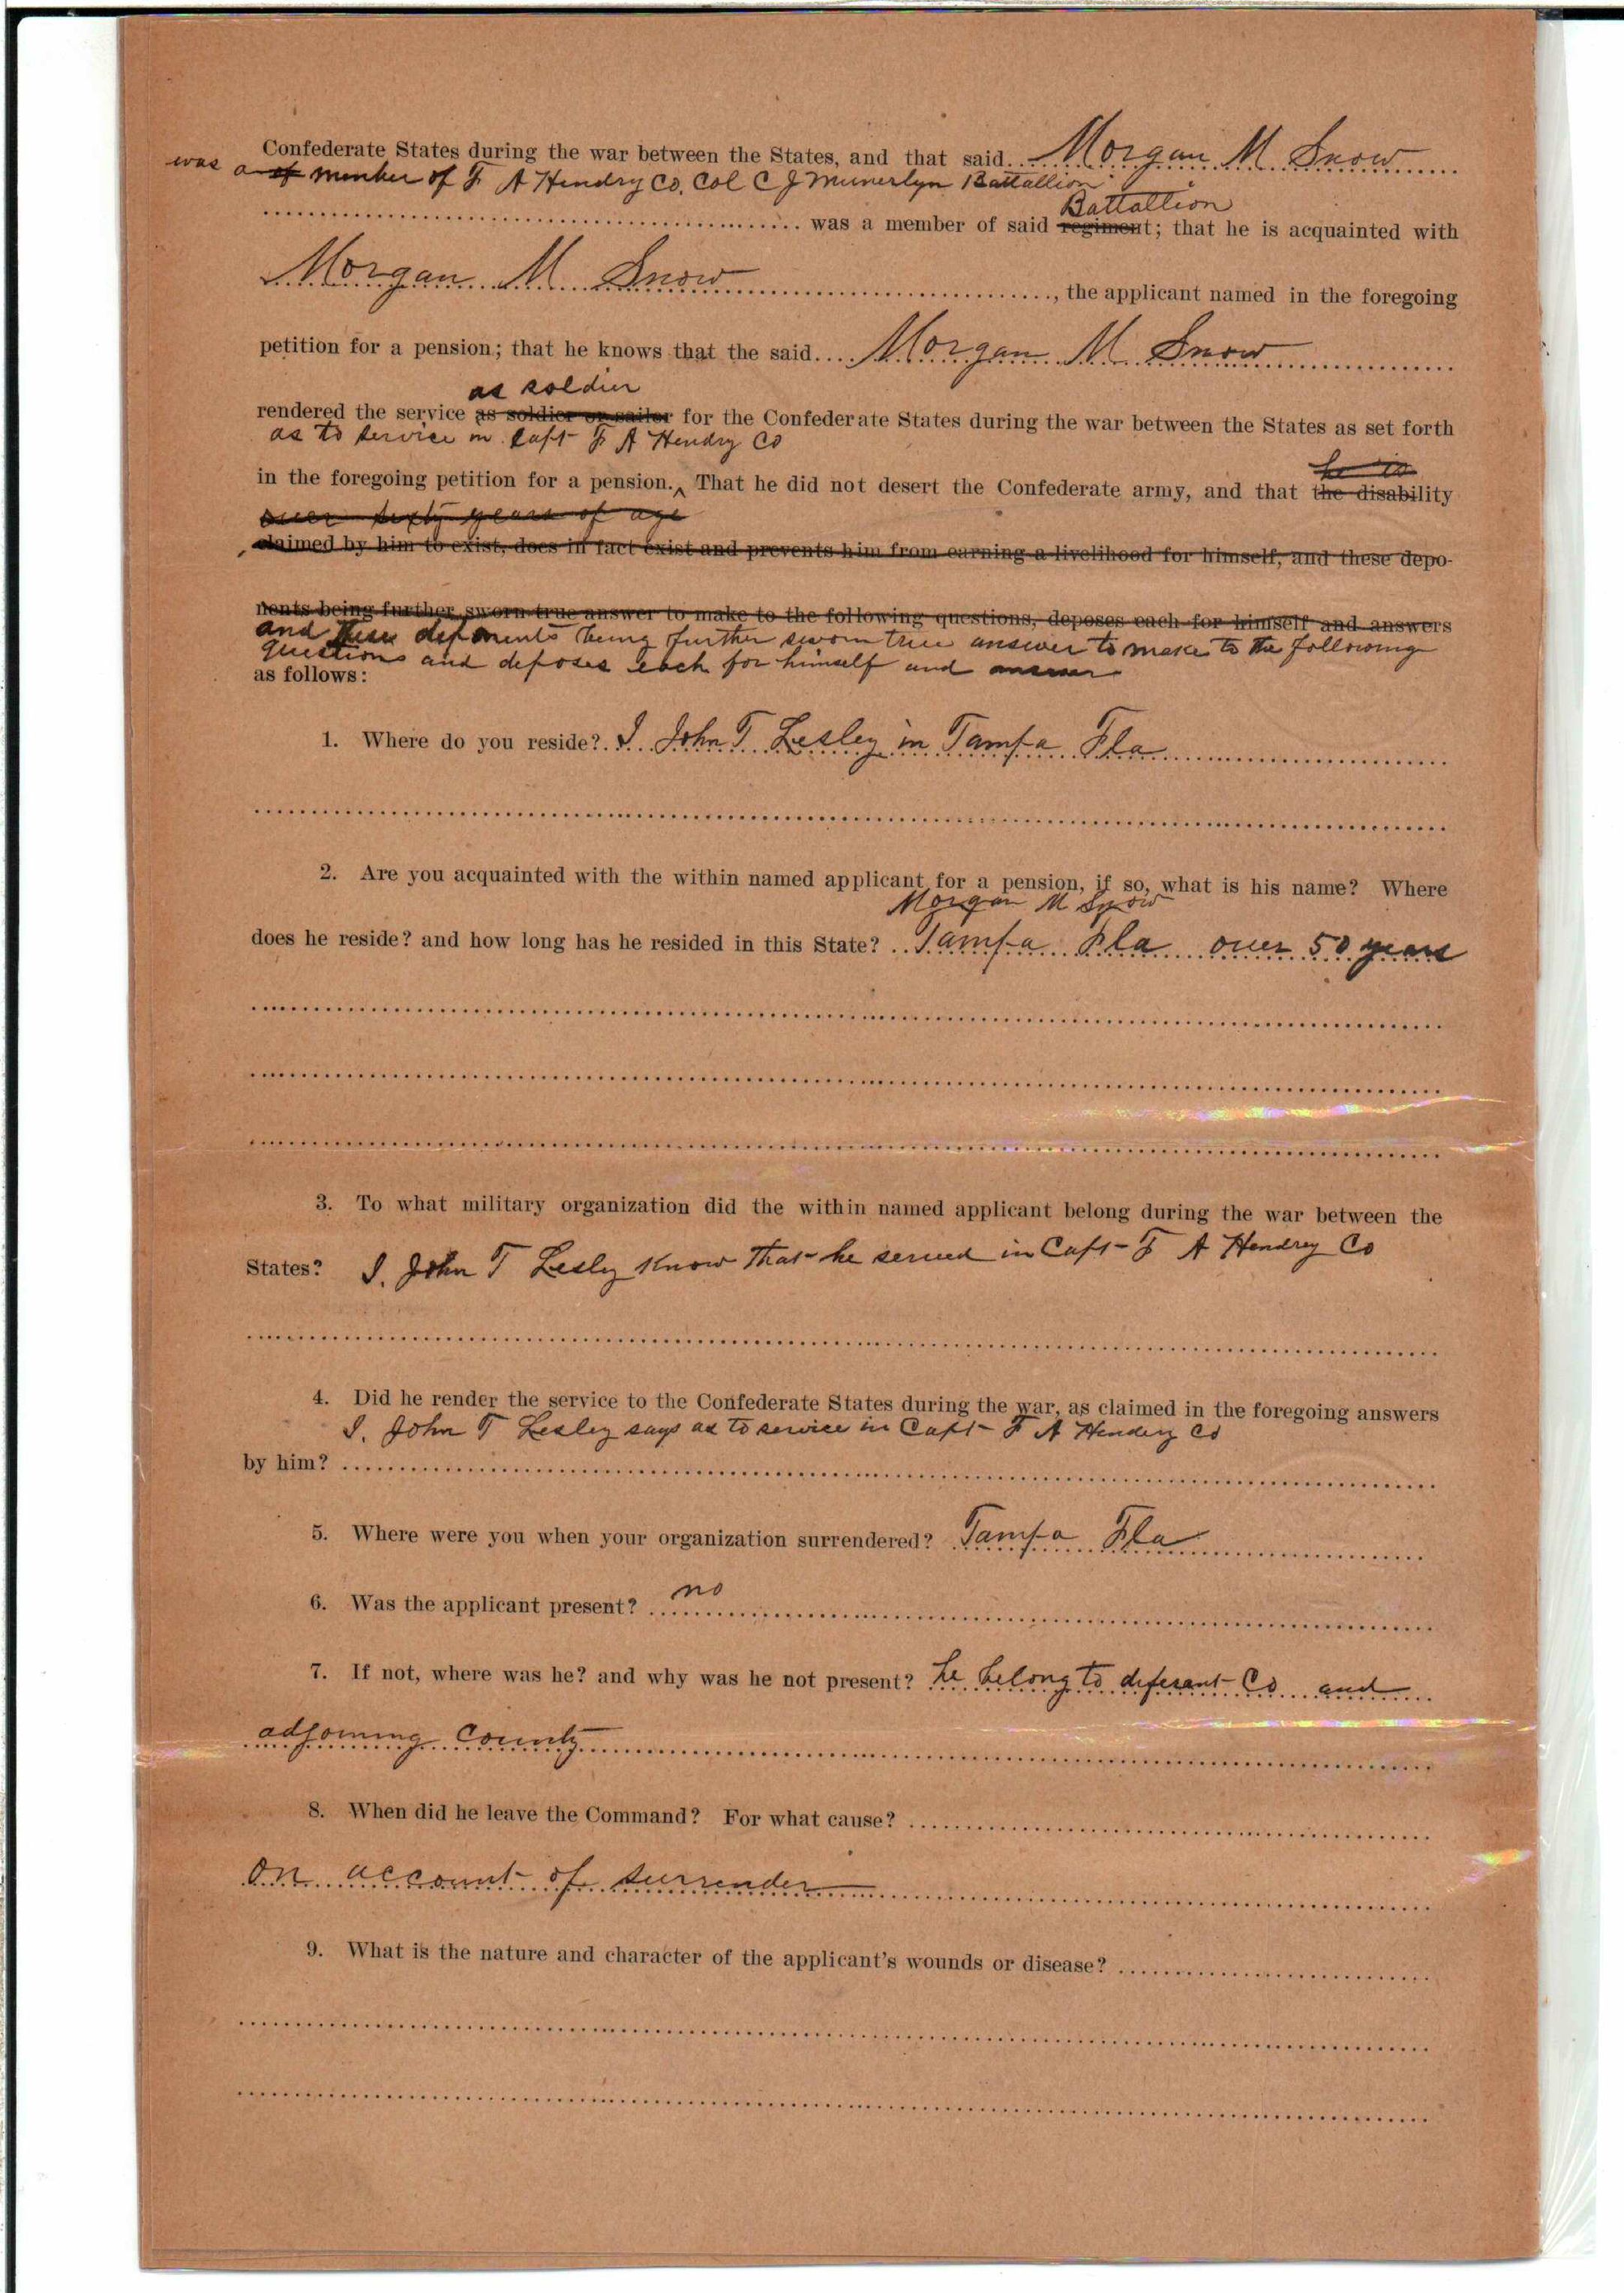 Confederate States during the war between the States, and that said Morgan M Snow
was a of member of F A Hendry Co. Col C J Munerlyn Battallion
Battallion
was a member of said regiment; that he is acquainted with
Morgan M Snow, the applicant named in the foregoing
petition for a pension; that he knows that the said Morgan M Snow
as soldier
rendered the service as soldier or sailor for the Confederate States during the war between the States as set forth
as to service in Capt F A Hendry Co
he is
in the foregoing petition for a pension. ‸ That he did not desert the Confederate army, and that the disability
over sixty years of age
claimed by him to exist, does in fact exist and prevents him from earning a livelihood for himself, and these depo-
nents being further sworn true answer to make to the following questions, deposes each for himself and answers
and these deponents being further sworn true answer to make to the following
questions and deposes each for himself and answer
as follows:
1. Where do you reside? I John T Lesley in Tampa Fla
2. Are you acquainted with the within named applicant for a pension, if so, what is his name? Where
Morgan M Snow
does he reside? and how long has he resided in this State? Tampa Fla over 50 years
3. To what military organization did the within named applicant belong during the war between the
States? I. John T Lesley Know that he served in Capt F A Hendry Co
4. Did he render the service to the Confederate States during the war, as claimed in the foregoing answers
I. John T Lesley says as to service in Capt F A Hendry Co
by him?
5. Where were you when your organization surrendered? Tampa Fla
6. Was the applicant present? no
7. If not, where was he? and why was he not present? he belong to diferant Co and
adjoining County
8. When did he leave the Command? For what cause?
on account of surrender
9. What is the nature and character of the applicant's wounds or disease?